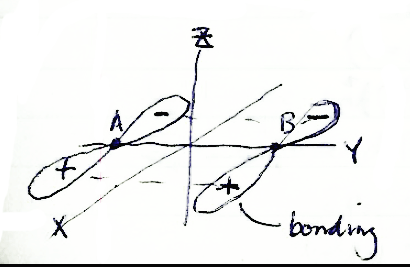 Z
A - B -
Y
+ +
X bonding